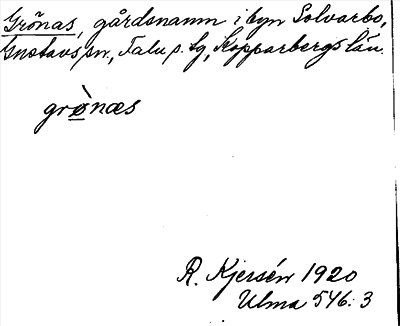 Grönas, gårdsnamn i byn Solvarbo,
Gustavs sn., Falu s. lg, Kopparbergs län.
grø̀næs
R. Kjersén 1920
Ulma 546:3